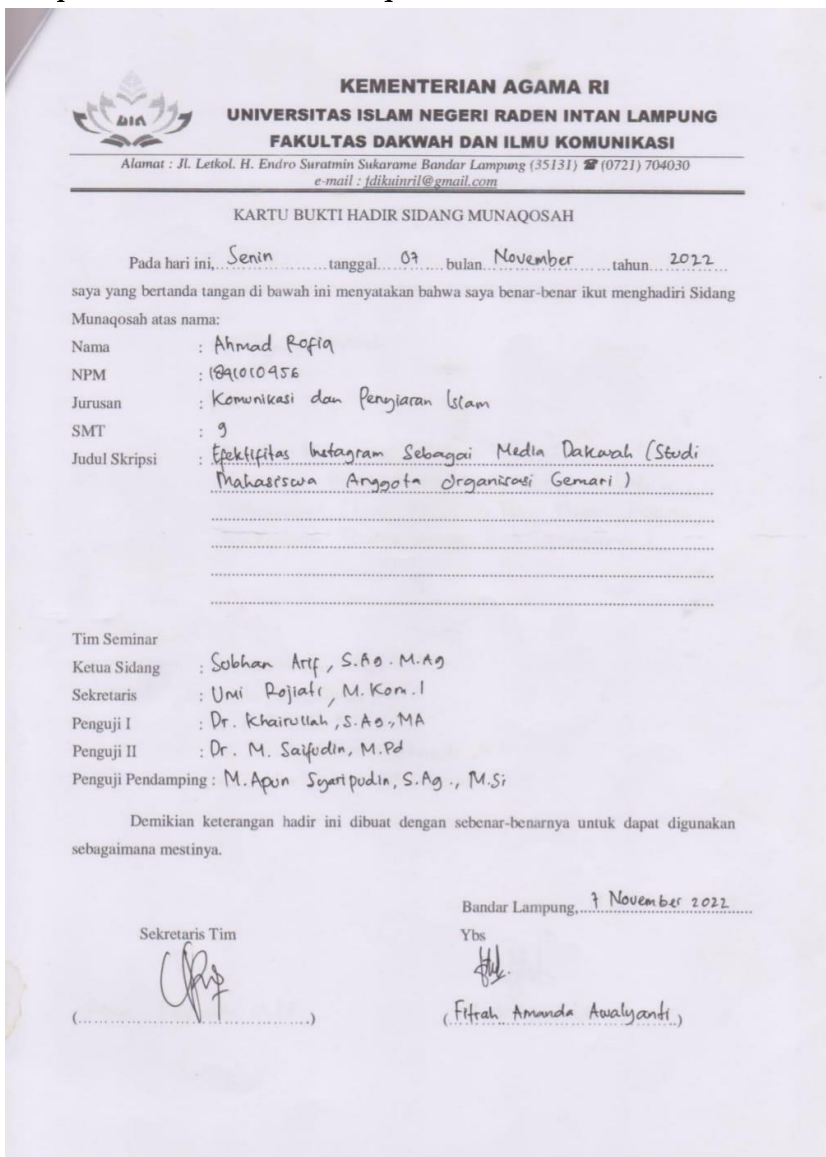 UIN
KEMENTERIAN AGAMA RI
UNIVERSITAS ISLAM NEGERI RADEN INTAN LAMPUNG
FAKULTAS DAKWAH DAN ILMU KOMUNIKASI
Alamat : Jl. Letkol. H. Endro Suratmin Sukarame Bandar Lampung (35131) ☎ (0721) 704030
e-mail : fdikuinril@gmail.com
KARTU BUKTI HADIR SIDANG MUNAQOSAH
Pada hari ini, Senin tanggal 07 bulan November tahun 2022
saya yang bertanda tangan di bawah ini menyatakan bahwa saya benar-benar ikut menghadiri Sidang
Munaqosah atas nama:
Nama : Ahmad Rofiq
NPM : 1841010456
Jurusan : Komunikasi dan Penyiaran Islam
SMT : 9
Judul Skripsi : Efektifitas Instagram Sebagai Media Dakwah (Studi
Mahasiswa Anggota Organisasi Gemari)
Tim Seminar
Ketua Sidang : Subhan Arif, S.Ag. M.Ag
Sekretaris : Umi Rojiati, M.Kom.I
Penguji I : Dr. Khairullah, S.Ag., MA
Penguji II : Dr. M. Saifudin, M.Pd
Penguji Pendamping : M. Apun Syaripudin, S.Ag., M.Si
Demikian keterangan hadir ini dibuat dengan sebenar-benarnya untuk dapat digunakan
sebagaimana mestinya.
Bandar Lampung, 7 November 2022
Sekretaris Tim
Ybs
(Fitrah Amanda Awalyanti)